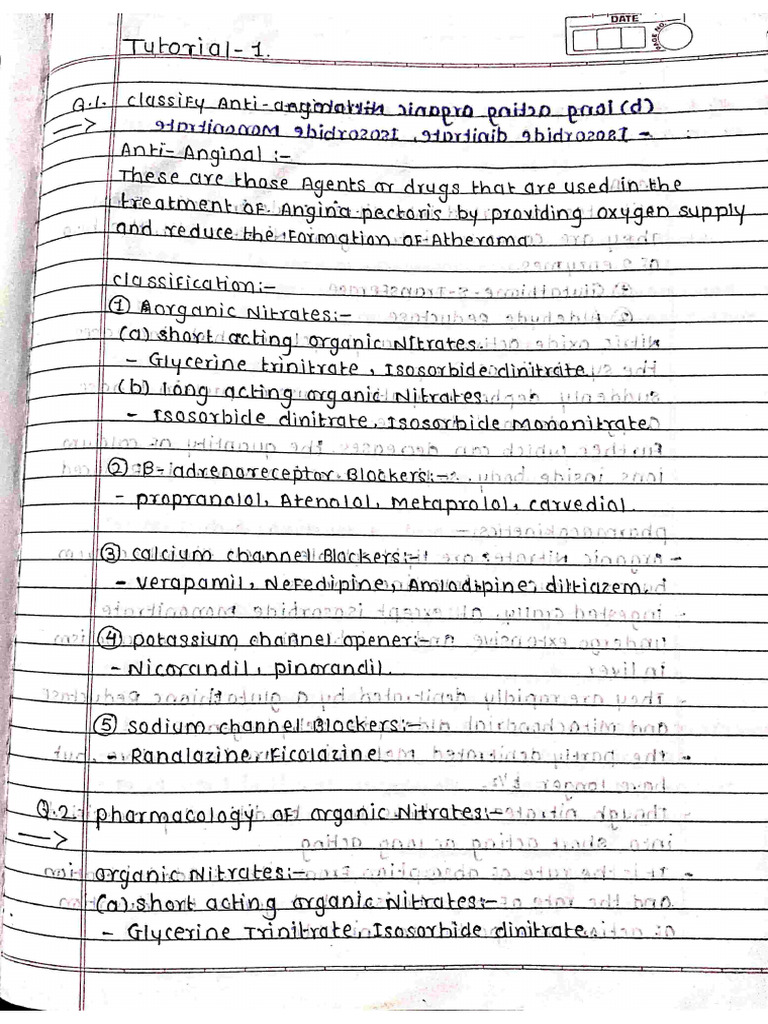 DATE
PAGE NO.
Tutorial-1.
Q.1. Classify Anti-anginal
Anti-Anginal :-
These are those Agents or drugs that are used in the
treatment of Angina pectoris by providing oxygen supply
and reduce the formation of Atheroma
classification:-
① Aorganic Nitrates:-
(a) short acting organic Nitrates.
- Glycerine trinitrate, Isosorbide dinitrate
(b) long acting organic Nitrates
- Isosorbide dinitrate, Isosorbide Mononitrate
② B-adrenoreceptor Blockers:-
- propranolol, Atenolol, Metaprolol, carvediol.
③ calcium channel Blockers:-
- verapamil, Nefedipine, Amlodipine, diltiazem.
④ potassium channel opener:-
- Nicorandil, pinorandil.
⑤ sodium channel Blockers:-
- Ranalazine, Ficolazine
Q.2. pharmacology of organic Nitrates:-
organic Nitrates:-
(a) short acting organic Nitrates:-
- Glycerine Trinitrate, Isosorbide dinitrate